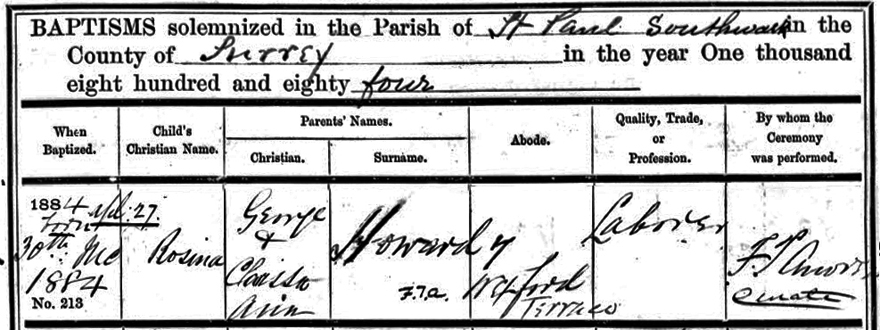 BAPTISMS solemnized in the Parish of St Paul Southwark in the
County of Surrey in the year One thousand
eight hundred and eighty four
When Baptized.
Child's Christian Name.
Parents' Names.
Christian.
Surname.
Abode.
Quality, Trade, or Profession.
By whom the Ceremony was performed.
1884
born
30th
1884
No. 213
Rosina
George
&
Ann
Howard
7
Terrace
Laborer
Curate